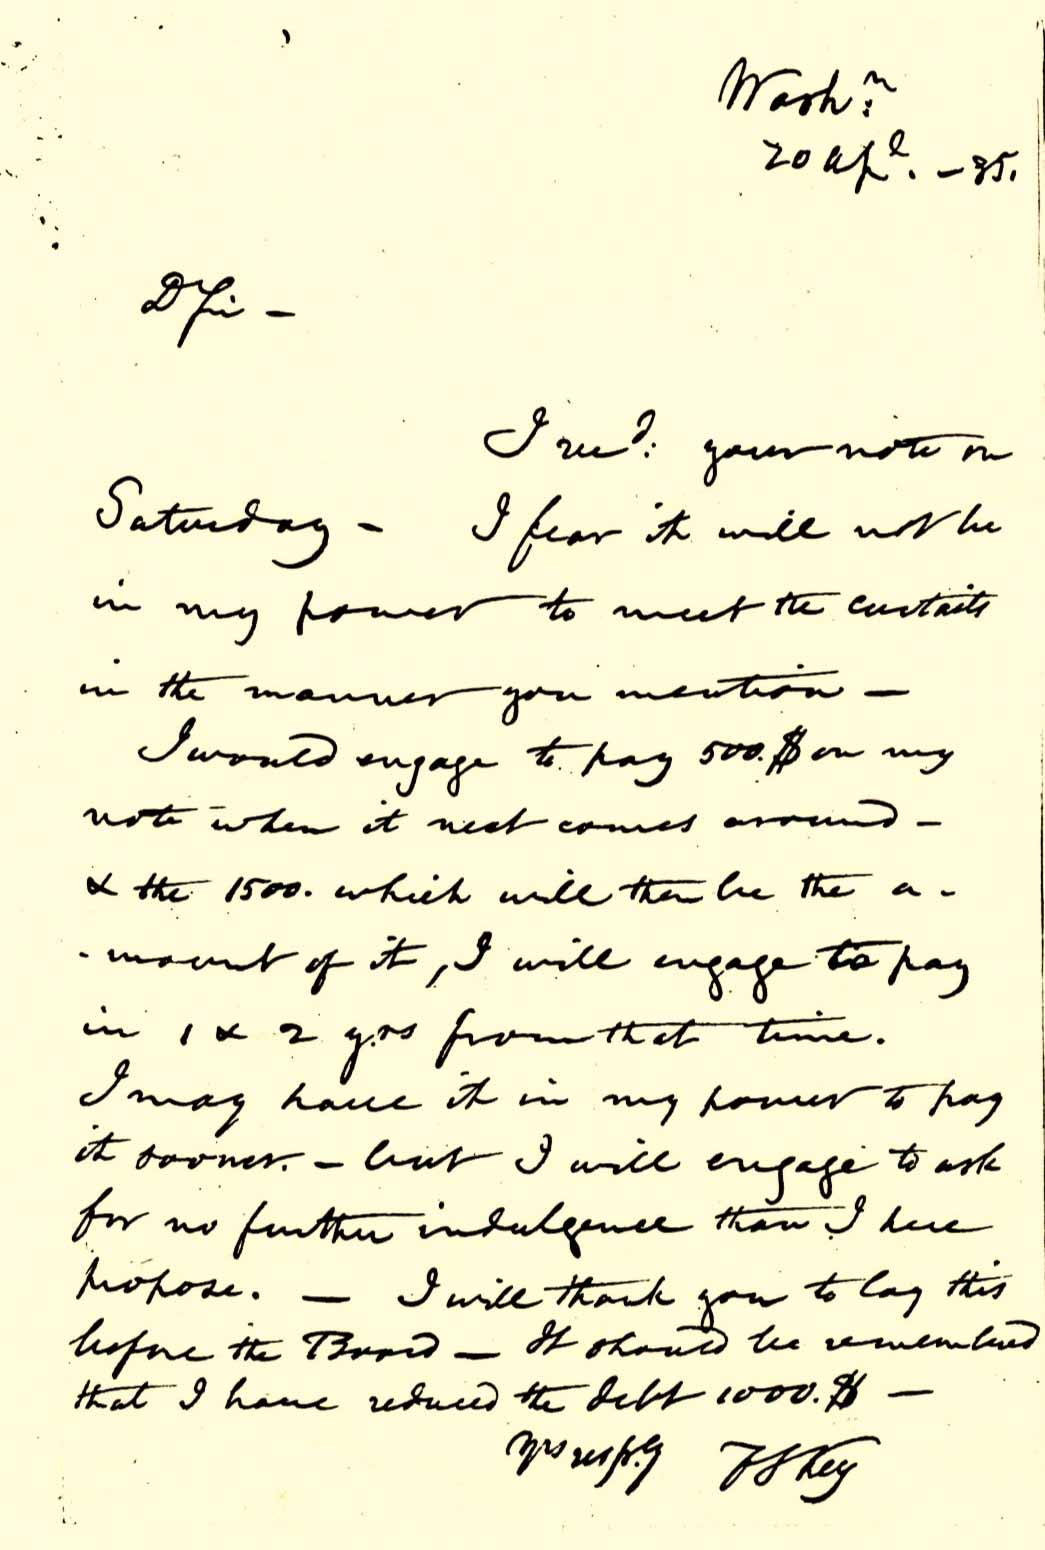 Wash:n
20 Apl. – 35.
Dr Sir –
I recd: your note on
Saturday – I fear it will not be
in my power to meet the curtails
in the manner you mention –
I would engage to pay 500.$ on my
note when it next comes around –
& the 1500. which will then be the a-
-mount of it, I will engage to pay
in 1 & 2 yrs from that time.
I may have it in my power to pay
it sooner. – but I will engage to ask
for no further indulgence than I here
propose. – I will thank you to lay this
before the Board – It should be remembered
that I have reduced the debt 1000.$ –
Yrs resp.y F S Key